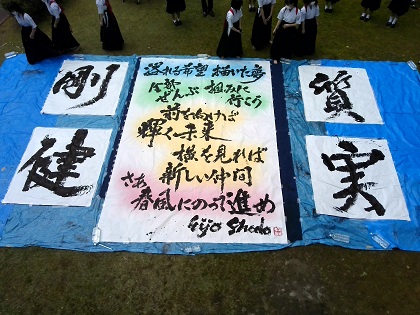 質
実
剛
健
溢れる希望 描いた夢
ぜんぶ 掴みに
行こう
前を向けば
輝く未来
横を見れば
新しい仲間
さあ
春風にのって進め
Gijo Shodo